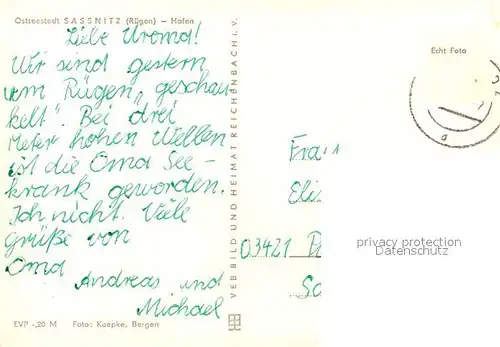 Ostseestadt SASSNITZ (Rügen) – Hafen
Liebe Uroma!
Wir sind gestern
vom Rügen „geschau-
kelt“. Bei drei
Meter hohen Wellen
ist die Oma See-
krank geworden.
Ich nicht. Viele
Grüße von
Oma
Andreas und
Michael
EVP -,20 M Foto: Kaepke, Bergen
VEB BILD UND HEIMAT REICHENBACH I. V.
Echt Foto
03421
privacy protection
Datenschutz